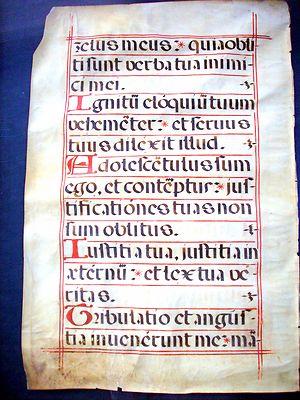 zelus meus: * quia obli
ti sunt verba tua inimi
ci mei.
Ignitū elóquiū tuum
vehemēter: * et servus
tuus dilexit illud.
Adolescētulus sum
ego, et contēptus: * jus
tificatiónes tuas non
sum oblitus.
Iustitia tua, justitia in
ætérnū: * et lex tua ve
ritas.
Tribulatio et angus
tia invenérunt me: * mā